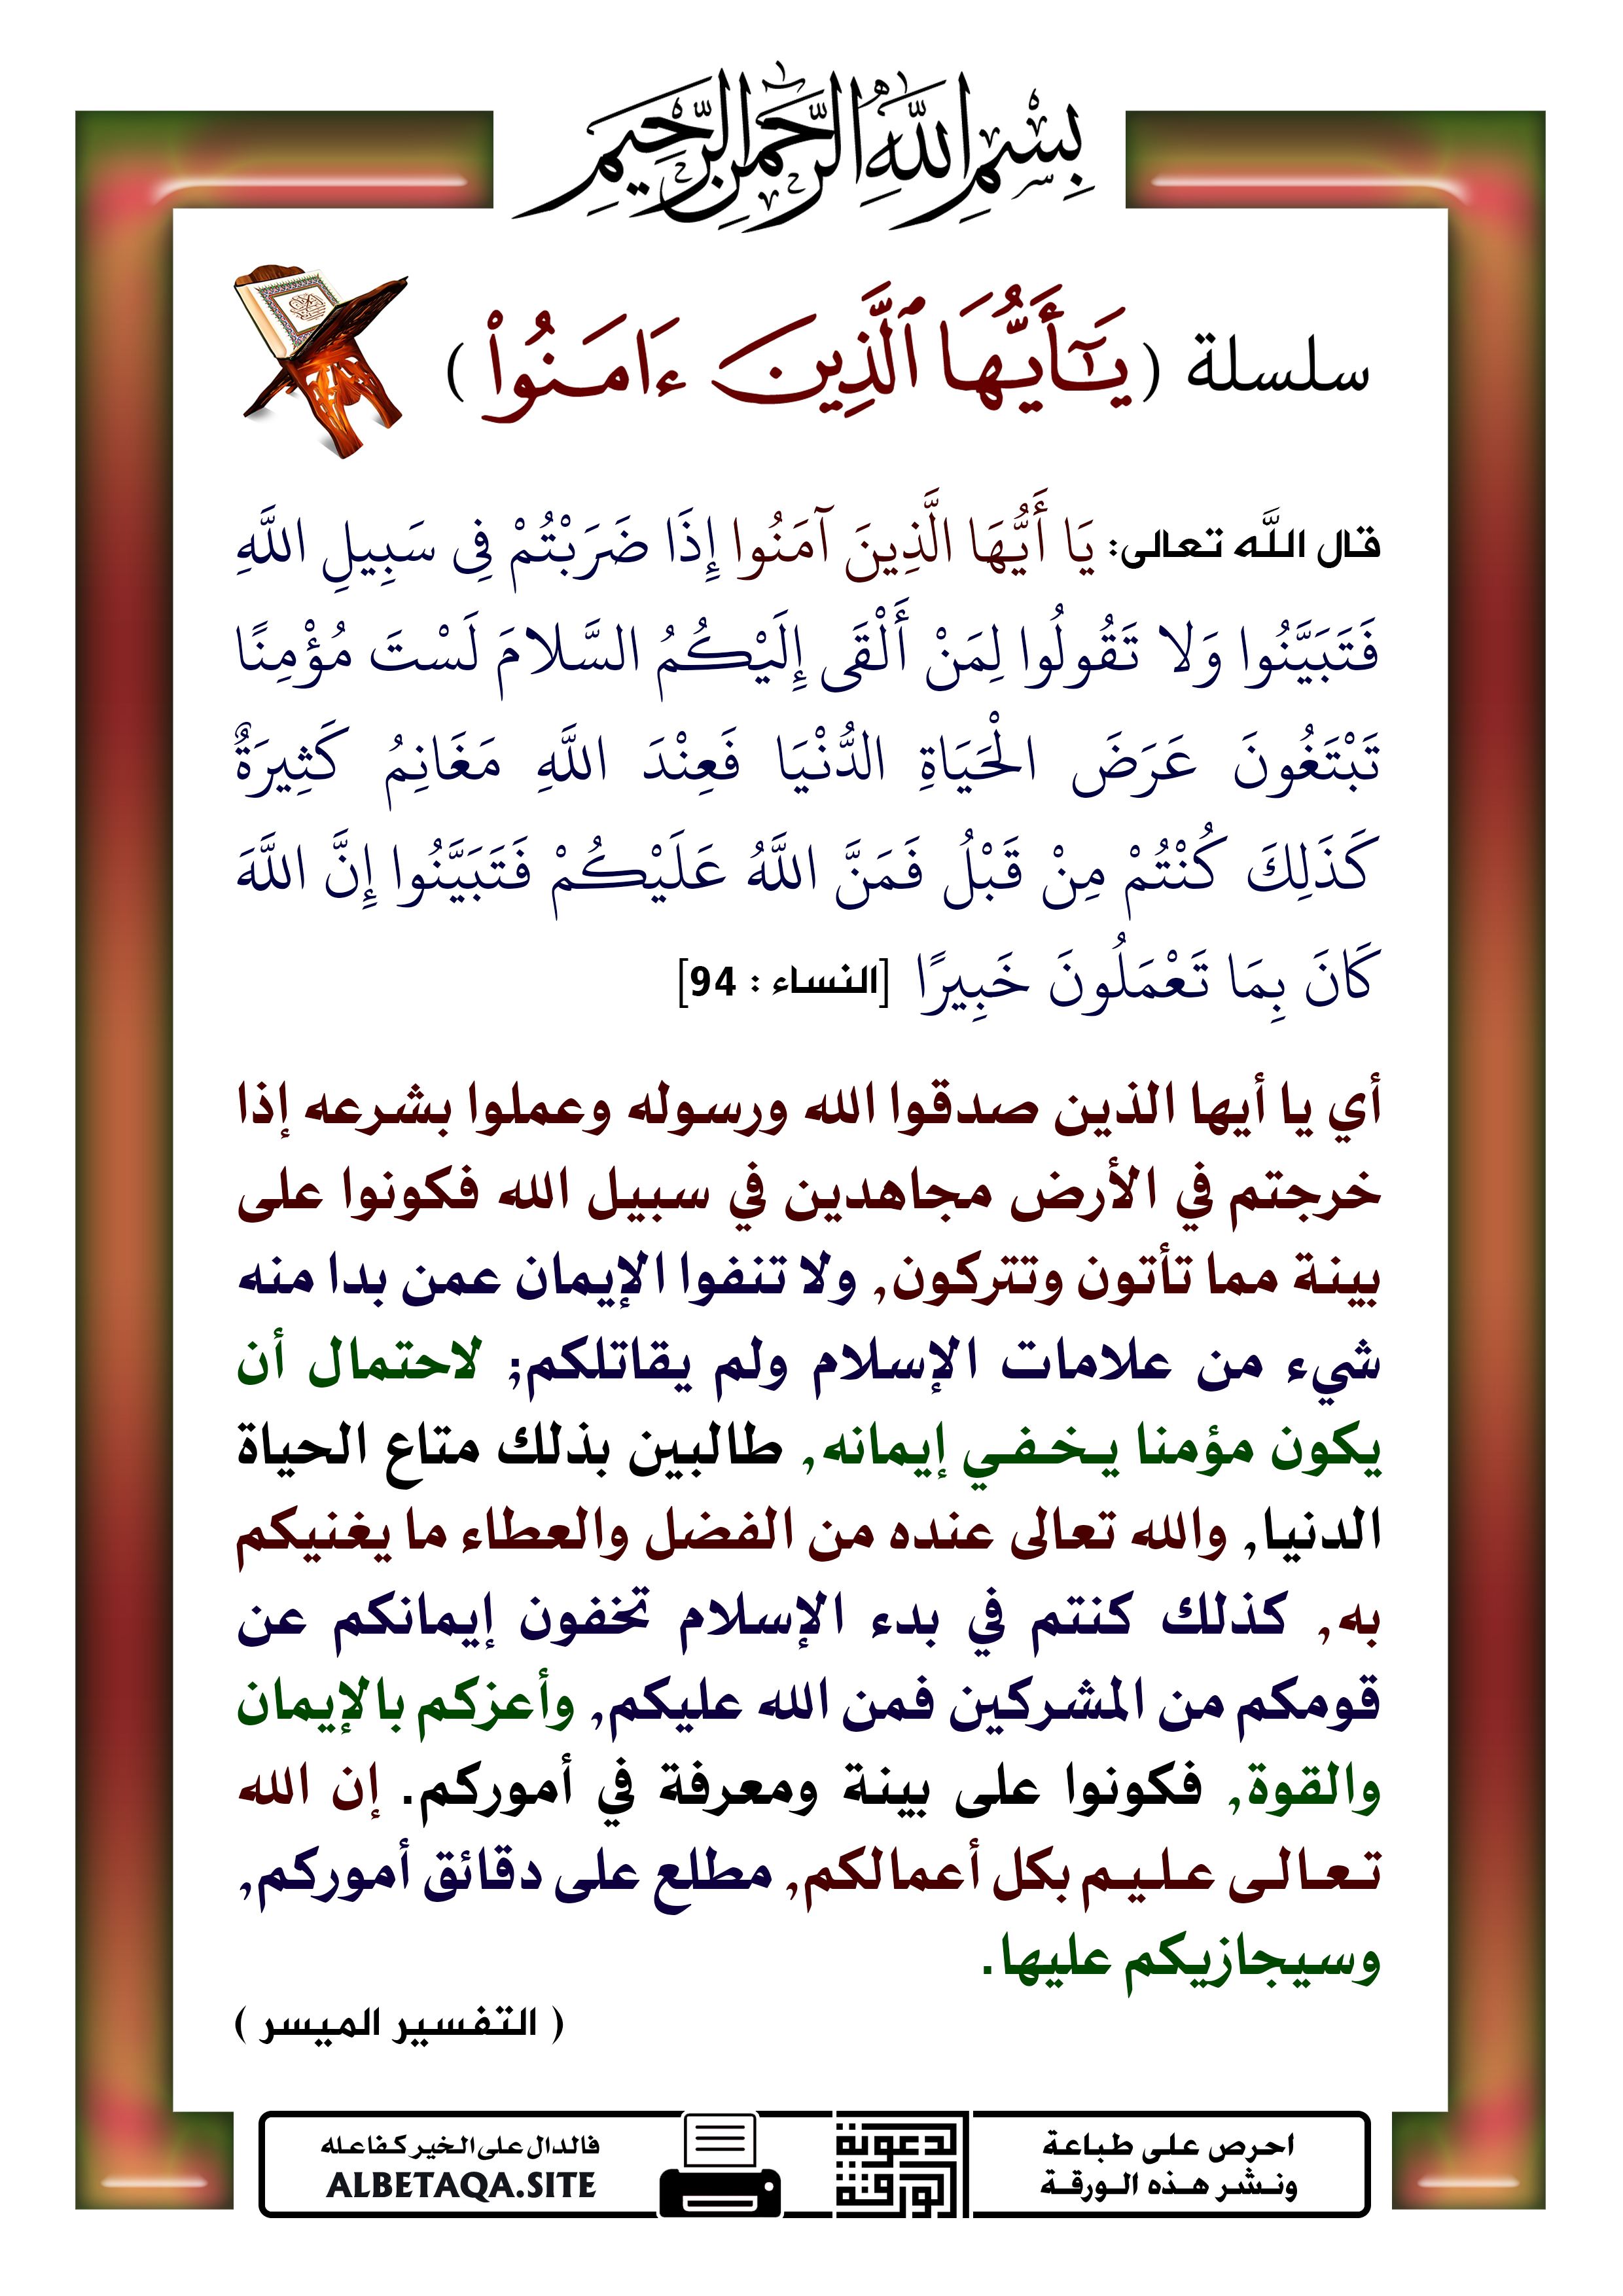 بِسْمِ اللَّهِ الرَّحْمَٰنِ الرَّحِيمِ
سلسلة (يَـٰٓأَيُّهَا ٱلَّذِينَ ءَامَنُوا۟)
قال اللَّه تعالى: يَا أَيُّهَا الَّذِينَ آمَنُوا إِذَا ضَرَبْتُمْ فِي سَبِيلِ اللَّهِ
فَتَبَيَّنُوا وَلا تَقُولُوا لِمَنْ أَلْقَى إِلَيْكُمُ السَّلامَ لَسْتَ مُؤْمِنًا
تَبْتَغُونَ عَرَضَ الْحَيَاةِ الدُّنْيَا فَعِنْدَ اللَّهِ مَغَانِمُ كَثِيرَةٌ
كَذَلِكَ كُنْتُمْ مِنْ قَبْلُ فَمَنَّ اللَّهُ عَلَيْكُمْ فَتَبَيَّنُوا إِنَّ اللَّهَ
كَانَ بِمَا تَعْمَلُونَ خَبِيرًا [النساء : 94]
أي يا أيها الذين صدقوا الله ورسوله وعملوا بشرعه إذا
خرجتم في الأرض مجاهدين في سبيل الله فكونوا على
بينة مما تأتون وتتركون, ولا تنفوا الإيمان عمن بدا منه
شيء من علامات الإسلام ولم يقاتلكم; لاحتمال أن
يكون مؤمنا يخفي إيمانه, طالبين بذلك متاع الحياة
الدنيا, والله تعالى عنده من الفضل والعطاء ما يغنيكم
به, كذلك كنتم في بدء الإسلام تخفون إيمانكم عن
قومكم من المشركين فمن الله عليكم, وأعزكم بالإيمان
والقوة, فكونوا على بينة ومعرفة في أموركم. إن الله
تعالى عليم بكل أعمالكم, مطلع على دقائق أموركم,
وسيجازيكم عليها.
( التفسير الميسر )
احرص على طباعة
ونشر هذه الورقة
الدعوية
الورقة
فالدال على الخير كفاعله
ALBETAQA.SITE